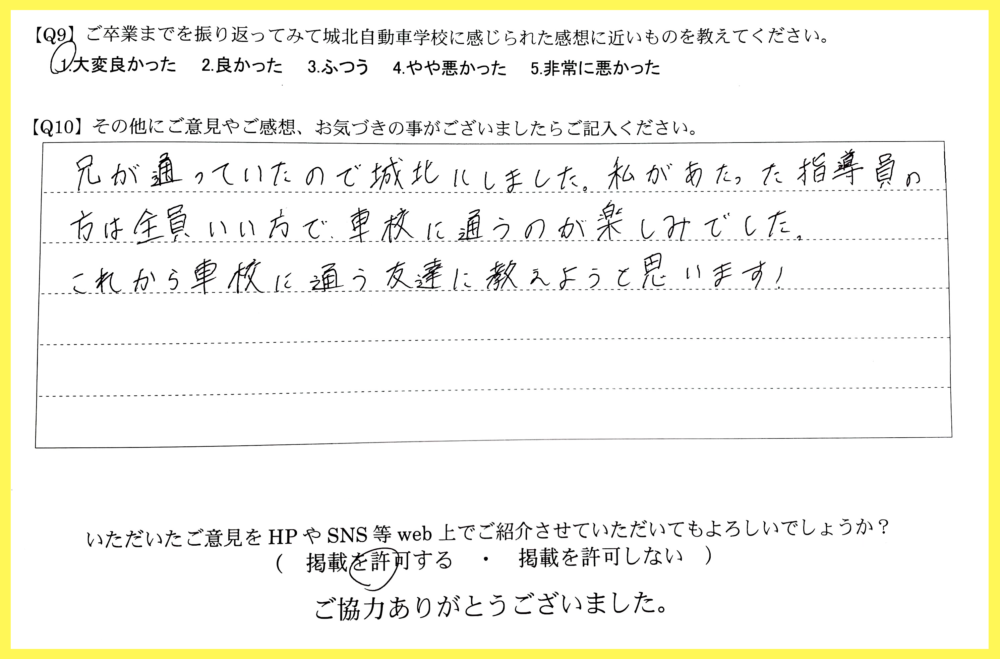 【Q9】ご卒業までを振り返ってみて城北自動車学校に感じられた感想に近いものを教えてください。
1.大変良かった 2.良かった 3.ふつう 4.やや悪かった 5.非常に悪かった
【Q10】その他にご意見やご感想、お気づきの事がございましたらご記入ください。
兄が通っていたので城北にしました。私があたった指導員の
方は全員いい方で、車校に通うのが楽しみでした。
これから車校に通う友達に教えようと思います!
いただいたご意見をHPやSNS等web上でご紹介させていただいてもよろしいでしょうか?
( 掲載を許可する ・ 掲載を許可しない )
ご協力ありがとうございました。